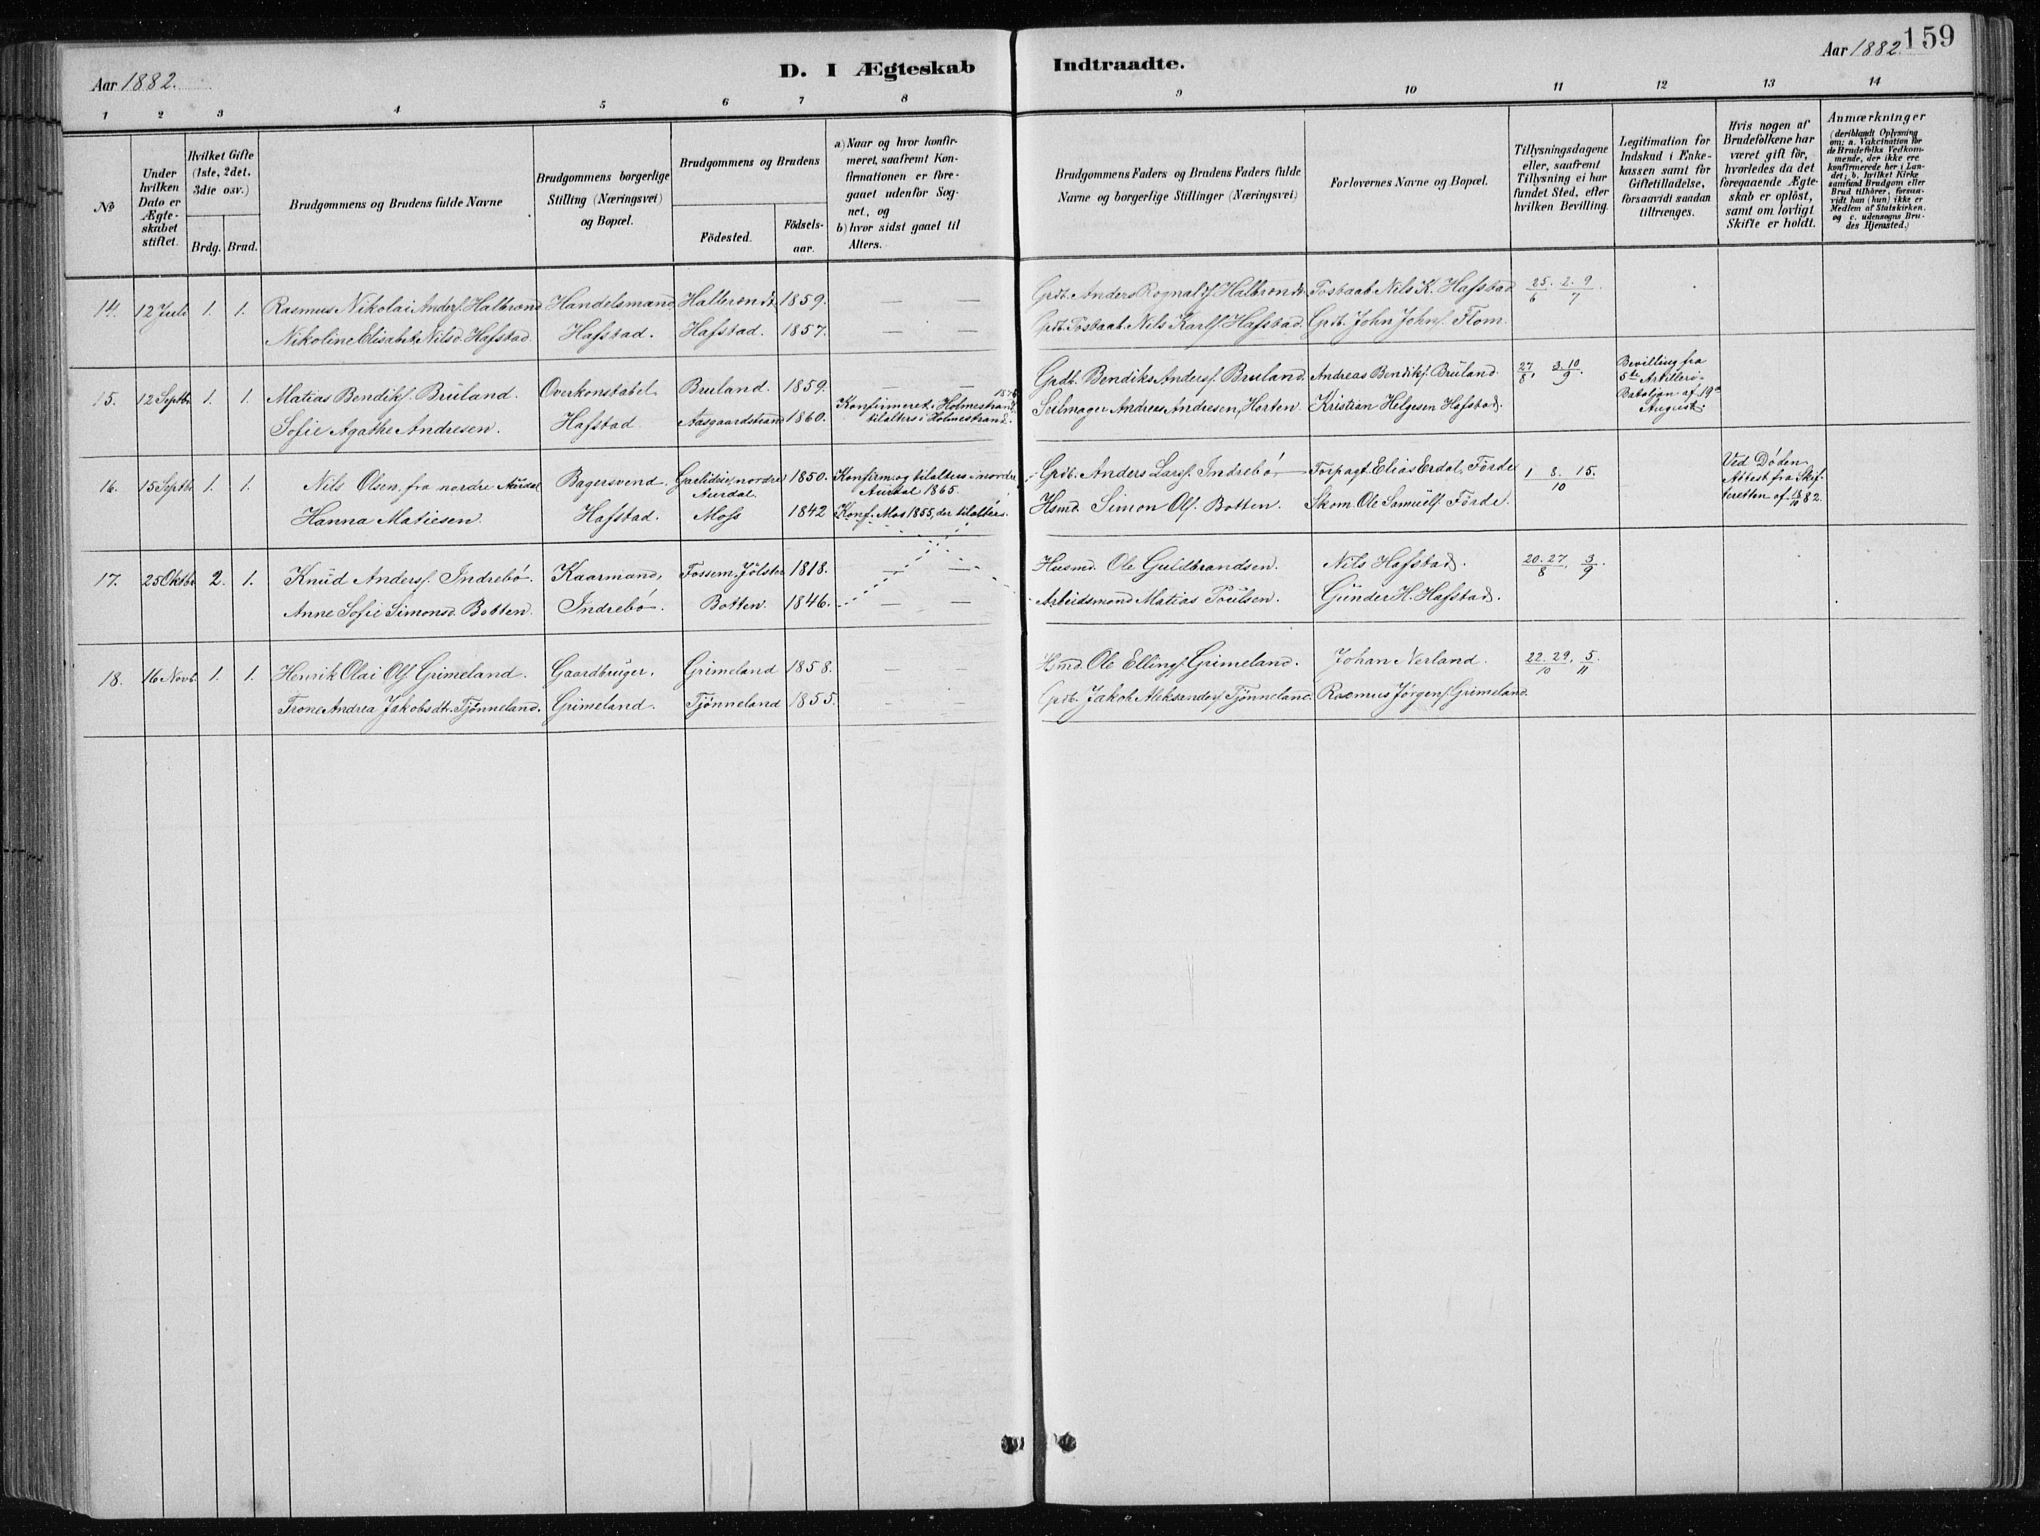 159
Aar 1882.
D. I Ægteskab Indtraadte.
Aar 1882.
1 2 3 4 5 6 7 8 9 10 11 12 13 14
No
Under hvilken Dato er Ægteskabet stiftet.
Hvilket Gifte (1ste, 2det, 3die osv.)
Brdg. Brud.
Brudgommens og Brudens fulde Navne
Brudgommens borgerlige Stilling (Næringsvei) og Bopæl.
Brudgommens og Brudens
Födested.
Födsels-aar.
a) Naar og hvor konfirmeret, saafremt Konfirmationen er foregaaet udenfor Sognet, og
b) hvor sidst gaaet til Alters.
Brudgommens Faders og Brudens Faders fulde Navne og borgerlige Stillinger (Næringsvei)
Forlovernes Navne og Bopæl.
Tillysningsdagene eller, saafremt Tillysning ei har fundet Sted, efter hvilken Bevilling.
Legitimation for Indskud i Enkekassen samt for Giftetilladelse, forsaavidt saadan tiltrænges.
Hvis nogen af Brudefolkene har været gift för, hvorledes da det foregaaende Ægteskab er oplöst, samt om lovligt Skifte er holdt.
Anmærkninger
(deriblandt Oplysning om: a. Vakcination for de Brudefolks Vedkommende, der ikke ere konfirmerede her i Landet; b. hvilket Kirkesamfund Brudgom eller Brud tilhörer, forsaavidt han (hun) ikke er Medlem af Statskirken, og c. udensogns Brudes Hjemsted.)
14. 12 Juli 1. 1. Rasmus Nikolai Anders. Halbrend Handelsmand Halbrend. 1859. — — Grdb. Anders Rognalds. Halbrend. Postaab Nils K. Hafstad 25/6 2. 9/7
Nikoline Elisabet Nilsd. Hafstad. Hafstad. Hafstad. 1857. — — Grdb. Postaab. Nils Karls. Hafstad. Grdb. John Johns. Flom.
15. 12 Septbr 1. 1. Matias Bendiks. Bruland. Overkonstabel Bruland. 1859. — — Grdb. Bendiks Anders. Bruland. Andreas Bendiks. Bruland. 27/8, 3. 10/9. Bevilling fra 5te Artilleri-Bataljon af 19de August.
Sofie Agathe Andresen. Hafstad. Aasgaardstrand 1860. Konfirmeret i Holmestrand tilalters i Holmestrand. Seilmager Andreas Andresen, Horten. Kristian Helgesen Hafstad.
16. 15 Septbr 1. 1. Nils Olsen, fra nordre Aurdal Bagersvend. nordre Aurdal. 1850. Konfirm. og tilalters i nordre Aurdal 1865. Grdb. Anders Lars. Indrebö Forpagt. Elias Erdal, Förde 1 8. 15./10 Ved Döden Attest fra Skifteretten
Hanna Matiesen. Hafstad. Moss 1842 Konf. Mos 1855, der tilalters. Hsmd. Simon Ols. Botten. Skom. Ole Samuels. Förde.
17. 25 Oktbr 2. 1. Knud Anders. Indrebö. Kaarmand, Fossem, Jölster 1818. — — Husmd. Ole Guldbrandsen. Nils Hafstad. 20. 27/8, 3/9.
Anne Sofie Simonsd. Botten. Indrebö. Botten. 1846. — — Arbeidsmand Matias Poulsen. Gunder H. Hafstad.
18. 16 Novb 1. 1. Henrik Olai Ols. Grimeland. Gaardbruger. Grimeland 1858. — — Hmd. Ole Ellings. Grimeland. Johan Nerland. 22. 29/10, 5/11.
Trone Andrea Jakobsdt. Tjönneland. Grimeland. Tjönneland 1855. — — Grdb. Jakob Aleksanders. Tjönneland. Rasmus Jørgens. Grimeland.